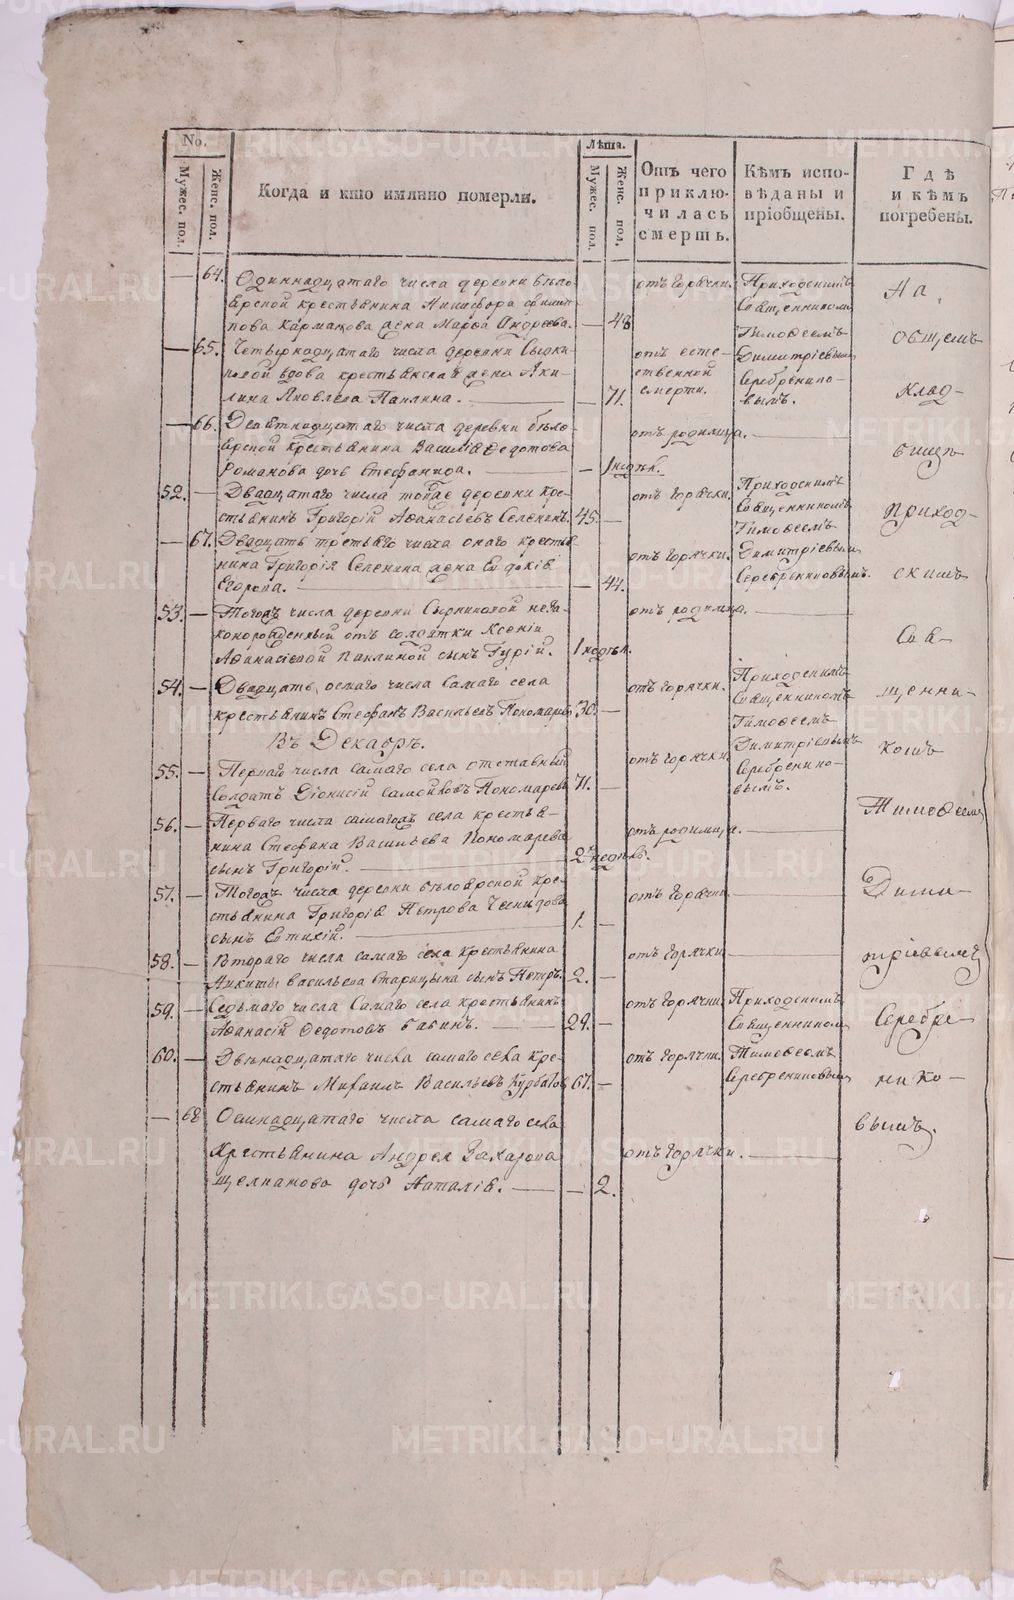 No.
Мужес. пол.
Женс. пол.
Когда и кто имянно померли.
Лѣта.
Мужес. пол.
Женс. пол.
Отъ чего приклю-чилась смерть.
Кѣмъ испо-вѣданы и пріобщены.
Гдѣ и кѣмъ погребены.
— 64. Одиннадцатаго числа деревни Бѣло-
ярской крестьянина Филип-
пова Карманова жена Марѳа Андреева. — 48
отъ горячки. Приходскимъ
Священникомъ
Тимоѳеемъ
Димитріевымъ
Серебренико-
вымъ.
— 65. Четырнадцатаго числа деревни
вдова крестьянская жена Аки-
лина Яковлева Паклина. — 71.
отъ есте-
ственной
смерти.
— 66. Девятнадцатаго числа деревни Бѣло-
ярской крестьянина Василія Ѳедотова
Романова дочь Стефанида. — 1 недѣл.
отъ родимца.
52. — Двадцатаго числа тояже деревни кре-
стьянинъ Григорій Аѳанасьевъ Селенинъ. 45. —
отъ горячки. Приходскимъ
Священникомъ
Тимоѳеемъ
Димитріевымъ
Серебрениковымъ.
— 67. Двадцать третьяго числа онаго крестья-
нина Григорія Селенина жена Евдокія
Егорова. — 44.
отъ горячки.
53. — Тогожъ числа деревни Сыркиковой неза-
конорожденный отъ солдатки Ксеніи
Аѳанасіевой Паклиной сынъ Гурій. 1 недѣл.
отъ родимца.
54. — Двадцать осмаго числа самаго села
крестьянинъ Стефанъ Васильевъ Пономаревъ 30. —
отъ горячки. Приходскимъ
Священникомъ
Тимоѳеемъ
Димитріевымъ
Серебренико-
вымъ.
Въ Декабрѣ.
55. — Перваго числа самаго села отставный
Солдатъ Діонисій Самойловъ Пономаревъ 71. —
отъ горячки.
56. — Перваго числа самагожъ села крестья-
нина Стефана Васильева Пономарева
сынъ Григорій. 2 недѣль.
отъ родимца.
57. — Тогожъ числа деревни Бѣлоярской кре-
стьянина Григорія Петрова
сынъ Евтихій. 1. —
отъ горячки
58. — Втораго числа самаго села крестьянина
Никиты Васильева Старицына сынъ Петръ. 2. —
отъ горячки
59. — Седьмаго числа самаго села крестьянинъ
Аѳанасій Ѳедотовъ Бабинъ. 29. —
отъ горячки Приходскимъ
Священникомъ
Тимоѳеемъ
Серебрениковымъ
60. — Двенадцатаго числа самаго села кре-
стьянинъ Михаилъ Васильевъ Курбатовъ 67. —
отъ горячки.
— 68 Осмнадцатаго числа самаго села
Крестьянина Андрея Захарова
Щелканова дочь Наталія. — 2.
отъ горячки.
На
общемъ
клад-
бищѣ
приход-
скимъ
Свя-
щенни-
комъ
Тимоѳеемъ
Дими-
тріевымъ
Серебре-
нико-
вымъ.
METRIKI.GASO-URAL.RU